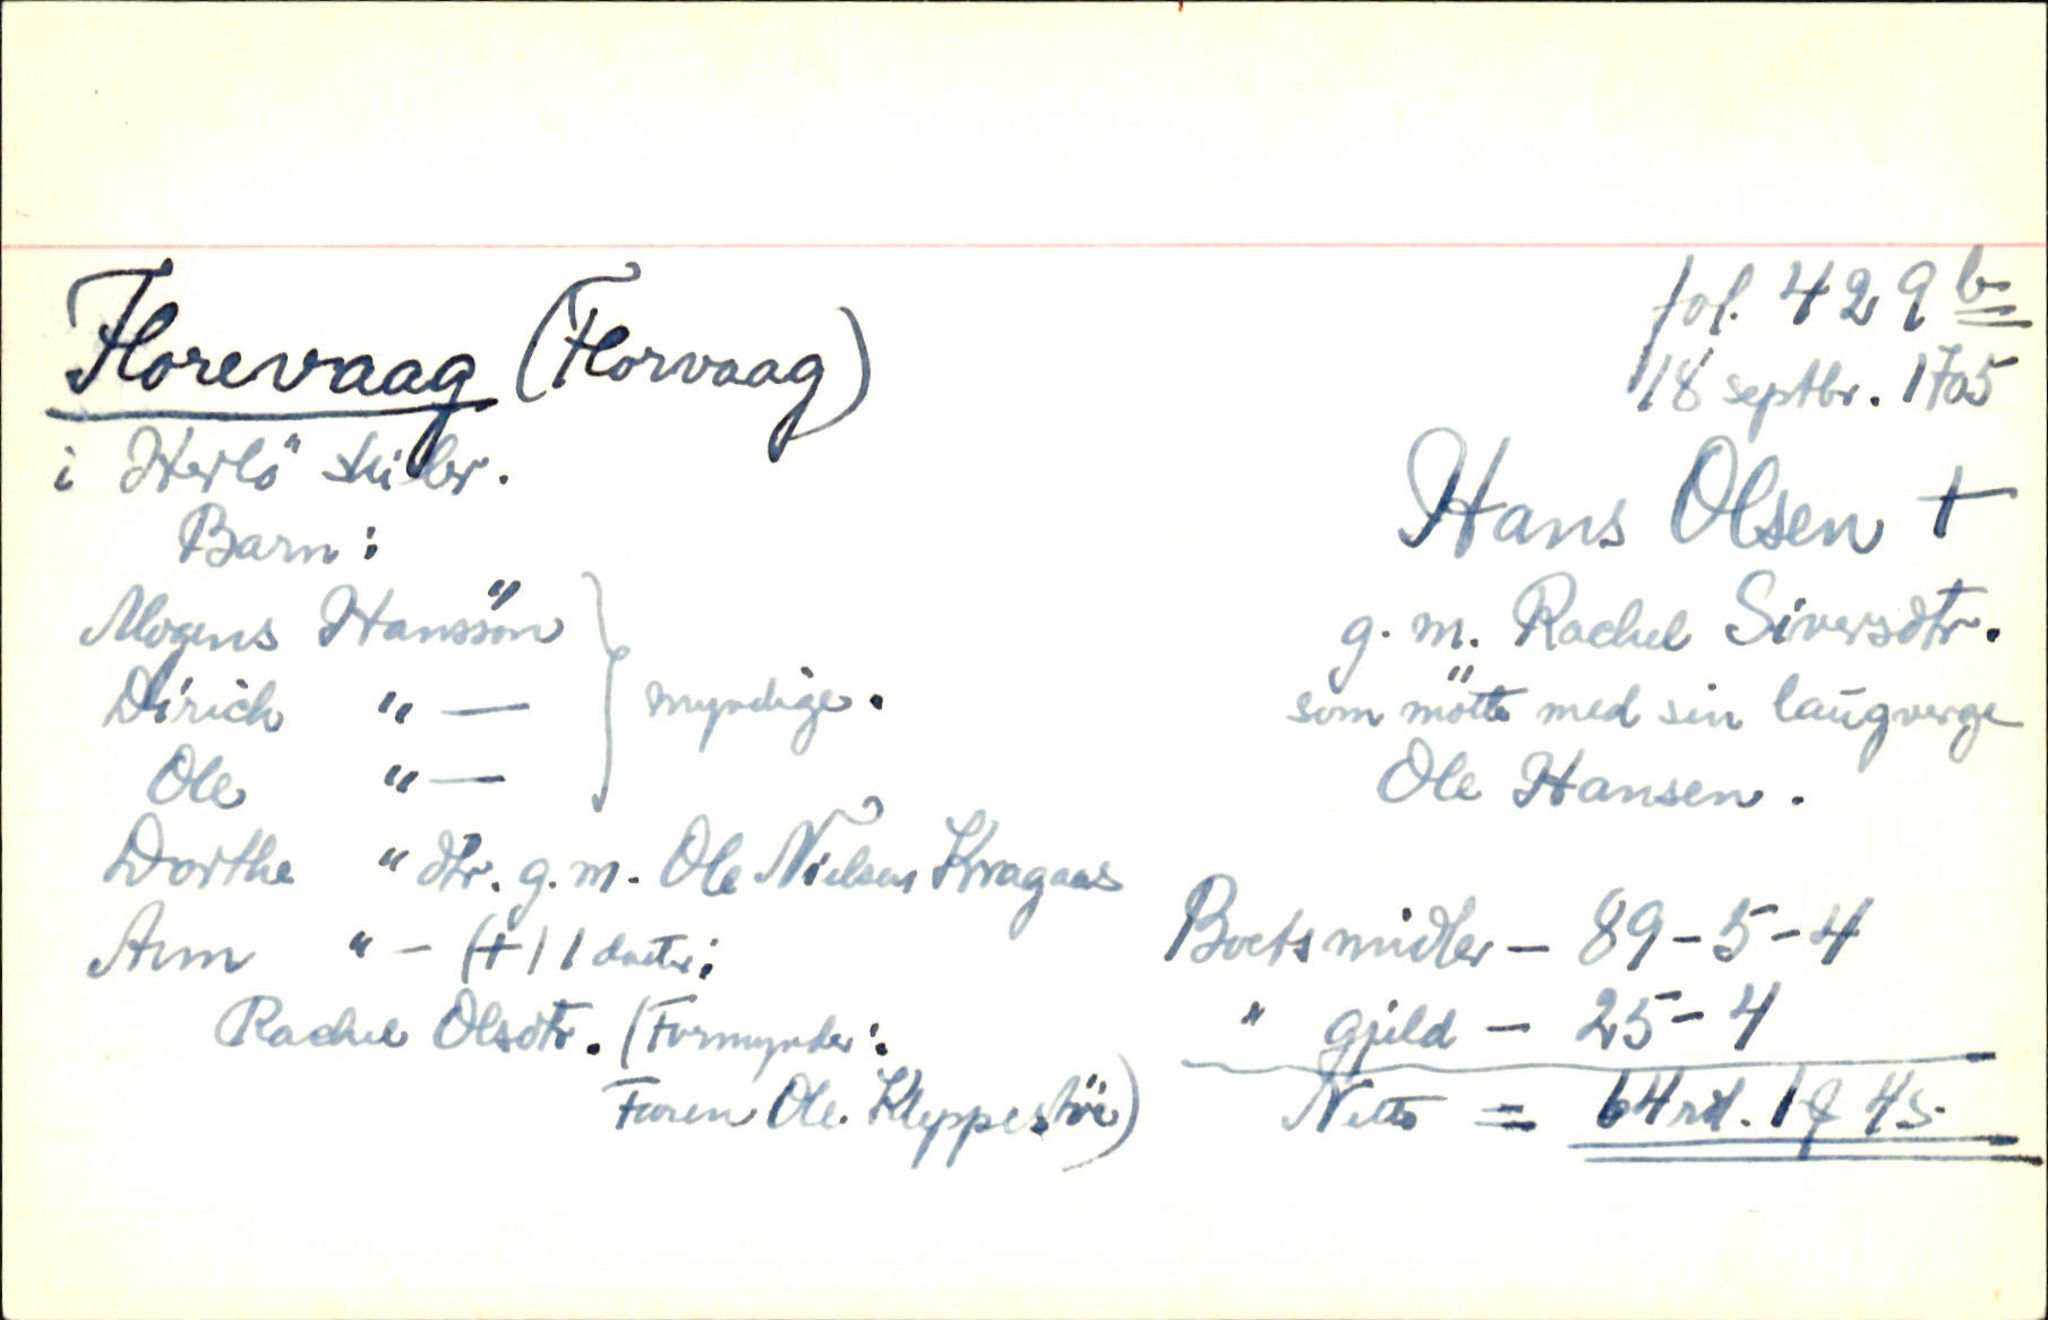 Florevaag (Florvaag)
i Herlö skibr.
Barn:
Mogens Hanssön
Dirich " —
Ole " —
myndige.
Dorthe " dtr. g. m. Ole Nielsen Kragaas
Ann " — (+) 1 dotter:
Rachel Olsdtr. (Formynder:
Faren Ole. Kleppestöe)
fol. 429 b
18 septbr. 1705
Hans Olsen +
g. m. Rachel Siversdtr.
som mötte med sin laugverge
Ole Hansen.
Boets midler — 89 - 5 - 4
" gjeld — 25 - 4
Netto = 64 rd. 1 4 s.